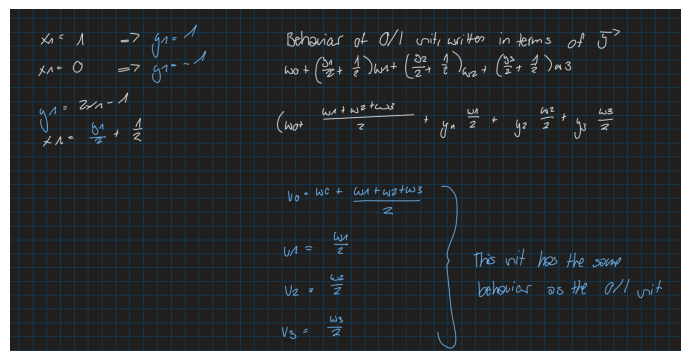 x1 = 1 => y1 = 1
x1 = 0 => y1 = -1
y1 = 2x1 - 1
x1 = y1/2 + 1/2
Behavior of 0/1 unit, written in terms of y→
w0 + (y1/2 + 1/2)w1 + (y2/2 + 1/2)w2 + (y3/2 + 1/2)w3
(w0 + (w1 + w2 + w3)/2 + y1 w1/2 + y2 w2/2 + y3 w3/2
v0 = w0 + (w1 + w2 + w3)/2
v1 = w1/2
v2 = w2/2
v3 = w3/2
This unit has the same
behavior as the 0/1 unit